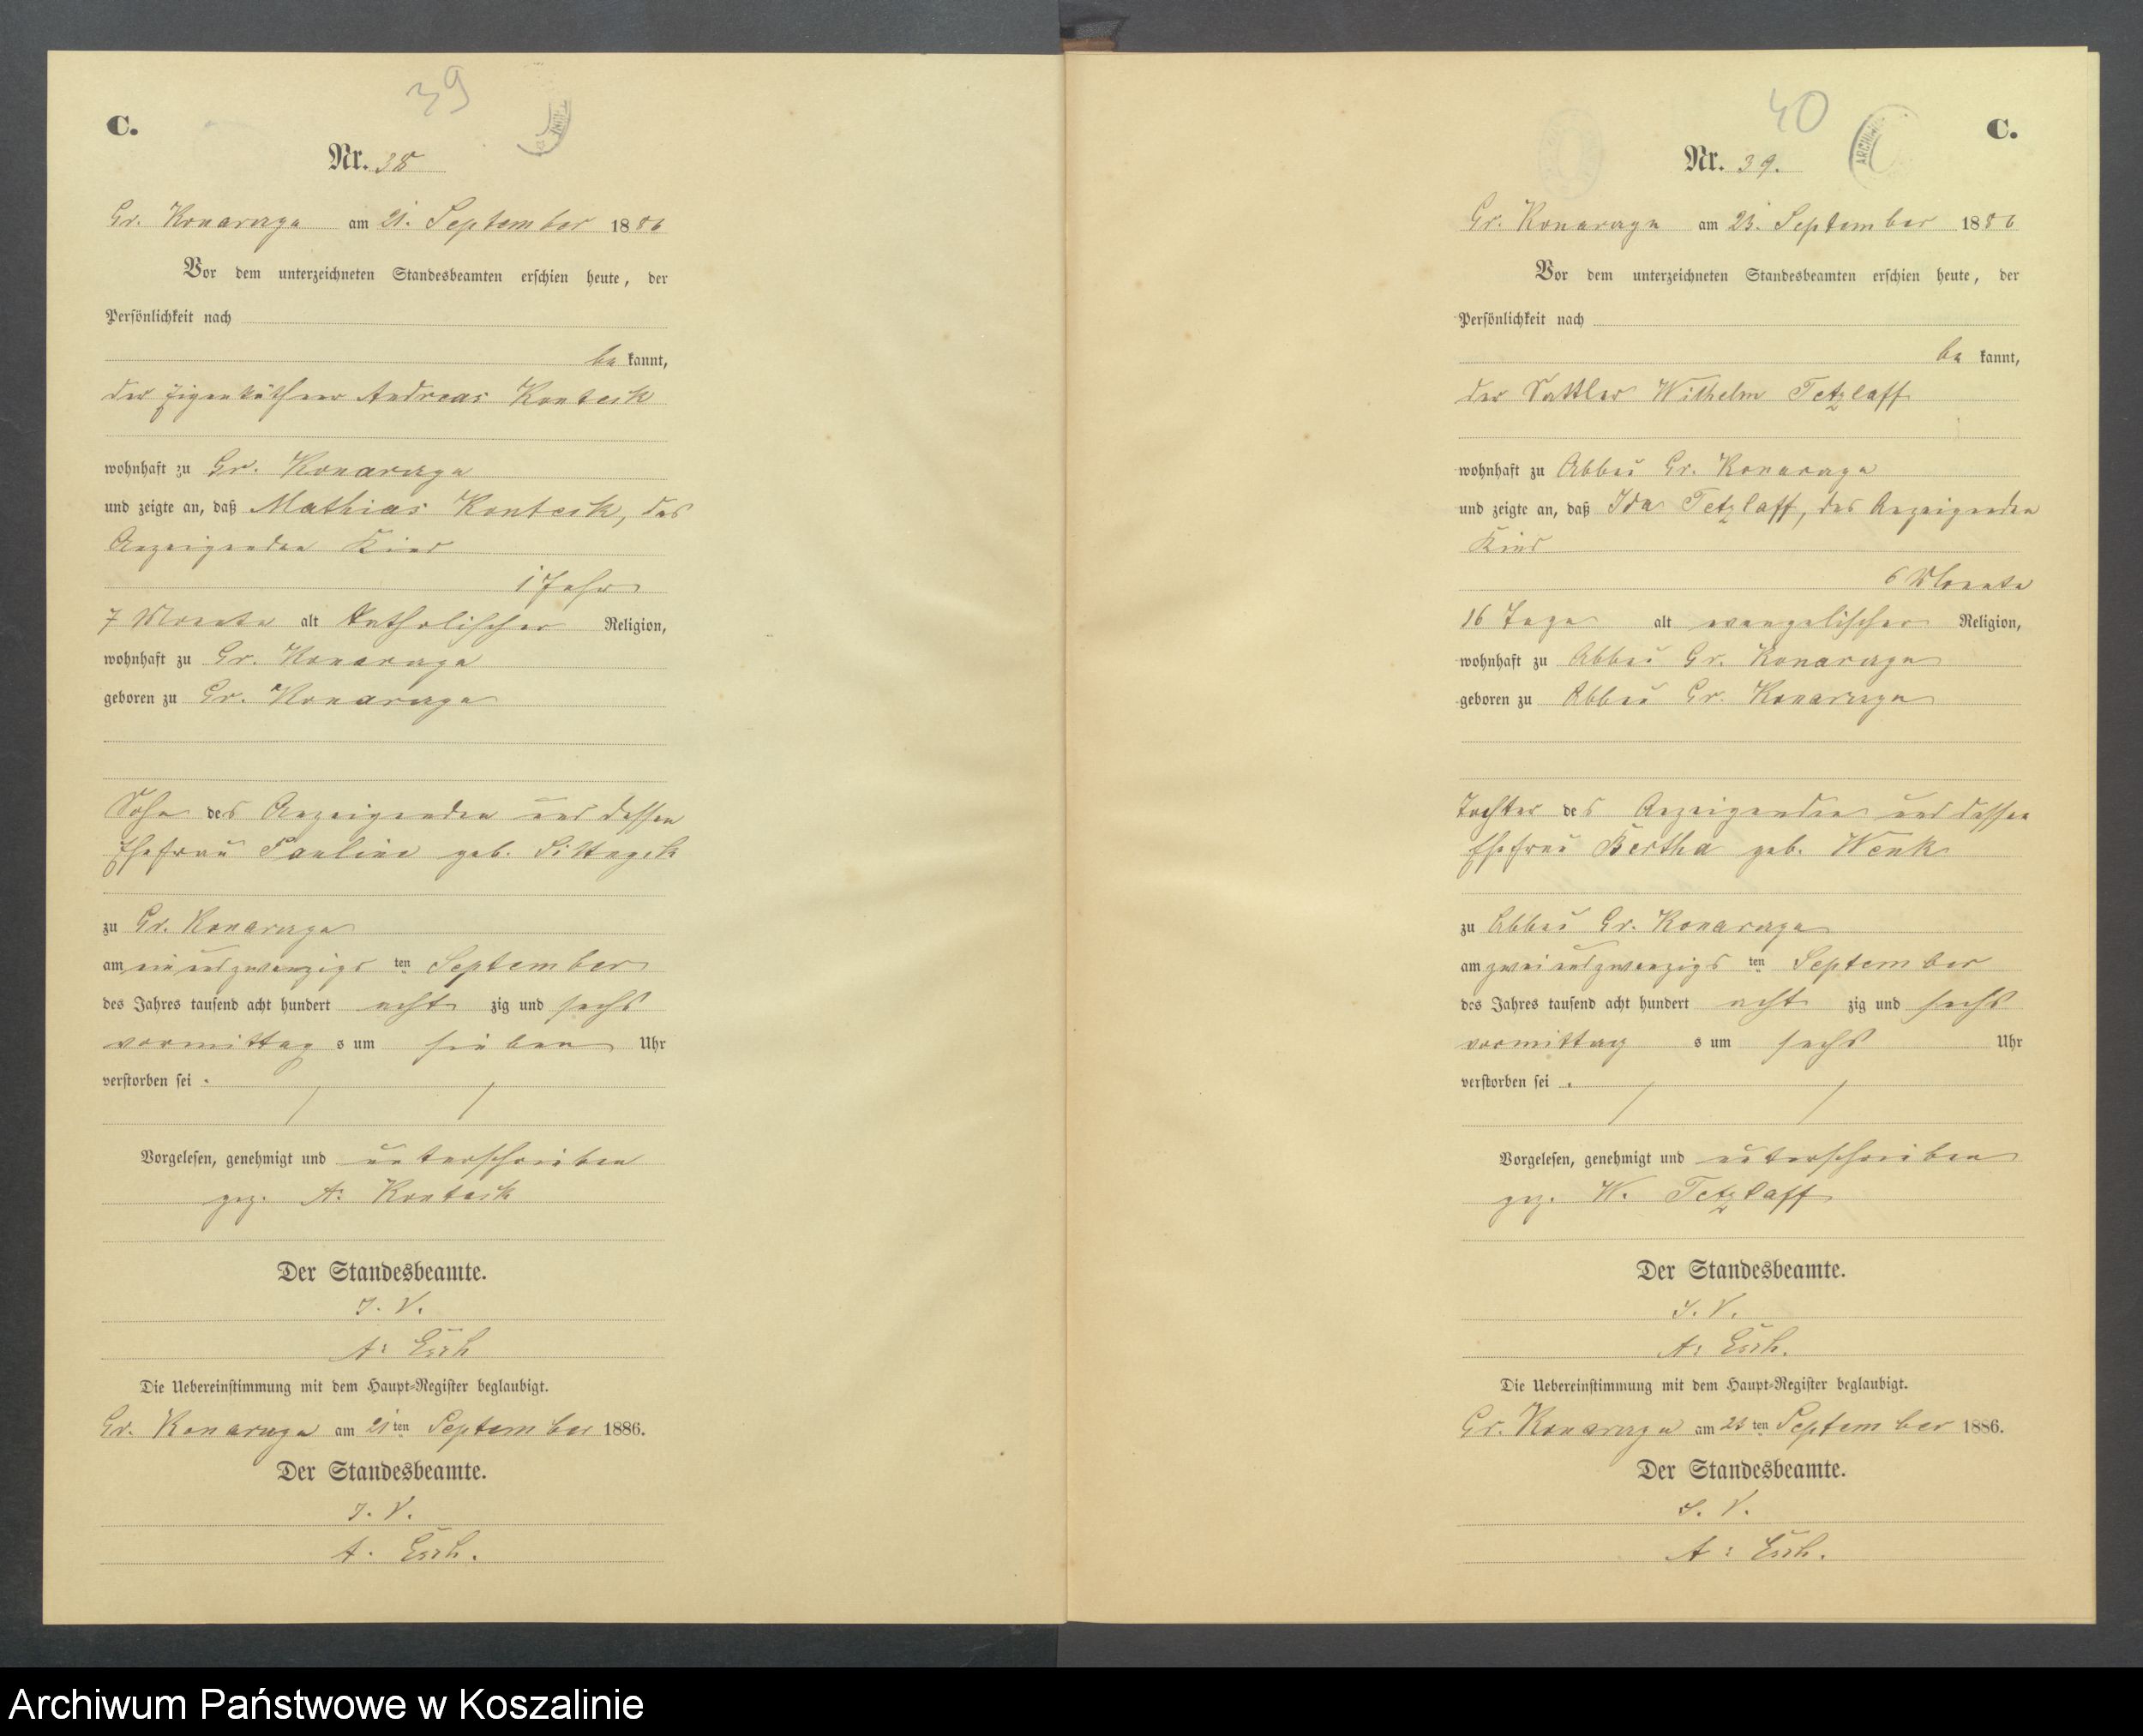 39
C.
Nr. 38
Gr. Konarczyn am 21. September 1886
Vor dem unterzeichneten Standesbeamten erschien heute, der
Persönlichkeit nach
be kannt,
der Eigenkäthner Andreas Konteck
wohnhaft zu Gr.
und zeigte an, daß Mathias Konteck, des
Anzeigenden Kind
1 Jahr
7 Monate alt katholischer Religion,
wohnhaft zu Gr.
geboren zu Gr.
Sohn des Anzeigenden und dessen
Ehefrau Pauline geb.
zu Gr.
am ein und zwanzigsten September
des Jahres tausend acht hundert acht zig und sechs
vormittag s um sieben Uhr
verstorben sei .
Vorgelesen, genehmigt und unterschrieben
gez. A. Konteck
Der Standesbeamte.
I. V.
A.
Die Uebereinstimmung mit dem Haupt-Register beglaubigt.
Gr. am 21ten September 1886.
Der Standesbeamte.
I. V.
A.
40
C.
Nr. 39.
Gr. am 23. September 1886
Vor dem unterzeichneten Standesbeamten erschien heute, der
Persönlichkeit nach
be kannt,
der Sattler Wilhelm Tetzlaff
wohnhaft zu Abbau Gr.
und zeigte an, daß Ida Tetzlaff, des Anzeigenden
Kind
6 Monate
16 Tage alt evangelischer Religion,
wohnhaft zu Abbau Gr.
geboren zu Abbau Gr.
Tochter des Anzeigenden und dessen
Ehefrau Bertha geb. Wenk
zu Abbau Gr.
am zwei und zwanzigsten September
des Jahres tausend acht hundert acht zig und sechs
vormittag s um sechs Uhr
verstorben sei .
Vorgelesen, genehmigt und unterschrieben
gez. W. Tetzlaff
Der Standesbeamte.
I. V.
A.
Die Uebereinstimmung mit dem Haupt-Register beglaubigt.
Gr. am 23ten September 1886.
Der Standesbeamte.
I. V.
A.
Archiwum Państwowe w Koszalinie